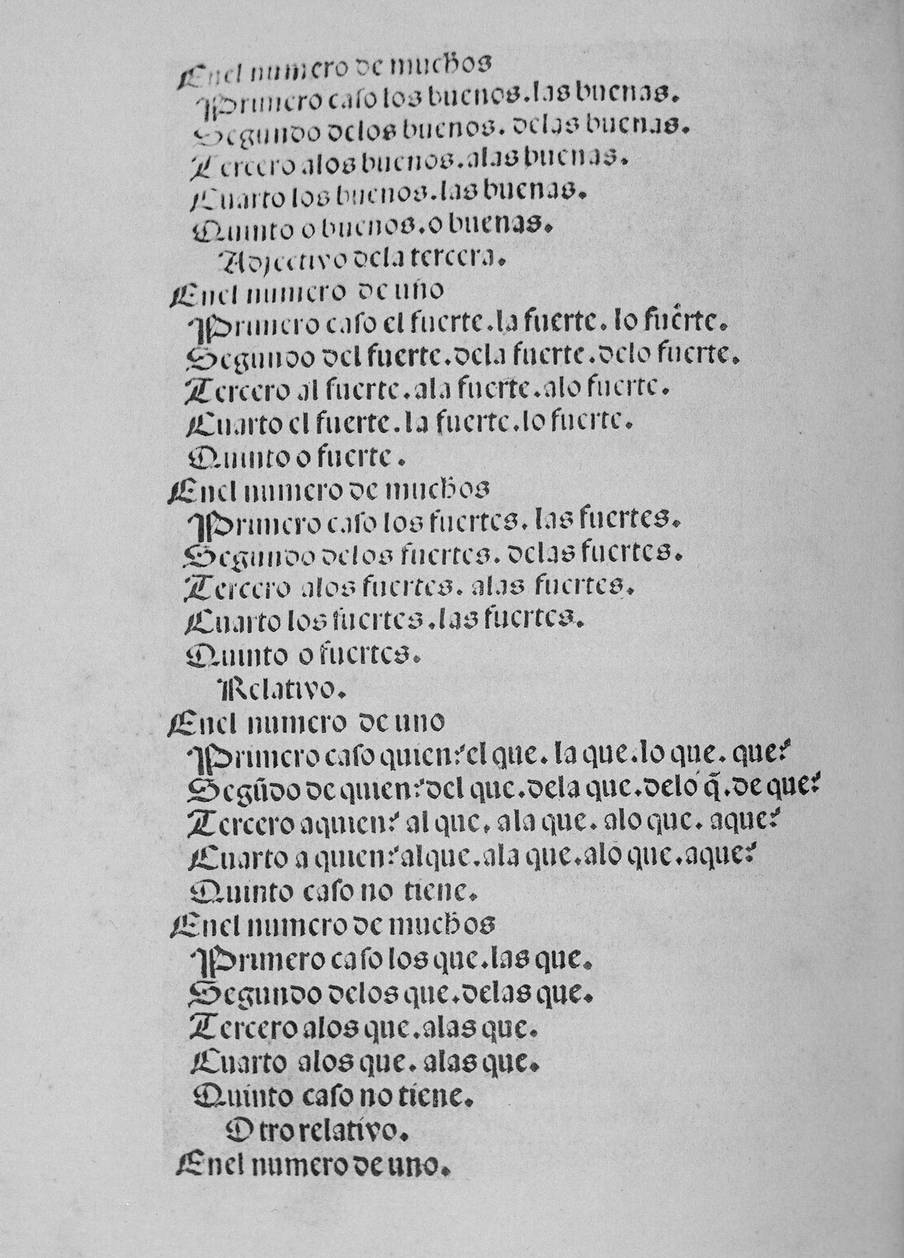 Enel numero de muchos
Primero caſo los buenos.las buenas.
Segundo delos buenos. delas buenas.
Tercero alos buenos.alas buenas.
Cuarto los buenos.las buenas.
Quinto o buenos.o buenas.
Adjectivo dela tercera.
Enel numero de uno
Primero caſo el fuerte.la fuerte. lo fuerte.
Segundo del fuerte.dela fuerte.delo fuerte.
Tercero al fuerte.ala fuerte.alo fuerte.
Cuarto el fuerte.la fuerte.lo fuerte.
Quinto o fuerte.
Enel numero de muchos
Primero caſo los fuertes. las fuertes.
Segundo delos fuertes. delas fuertes.
Tercero alos fuertes. alas fuertes.
Cuarto los fuertes.las fuertes.
Quinto o fuertes.
Relativo.
Enel numero de uno
Primero caſo quien?el que. la que.lo que. que?
Segūdo de quien?del que.dela que.delo q̄.de que?
Tercero aquien? al que. ala que. alo que. aque?
Cuarto a quien?alque.ala que.alo que.aque?
Quinto caſo no tiene.
Enel numero de muchos
Primero caſo los que.las que.
Segundo delos que.delas que.
Tercero alos que.alas que.
Cuarto alos que. alas que.
Quinto caſo no tiene.
Otro relativo.
Enel numero de uno.